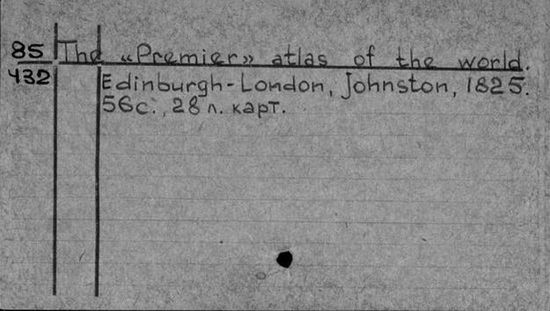 85 The «Premier» atlas of the world.
432 Edinburgh-London, Johnston, 1825.
56с., 28 л. карт.